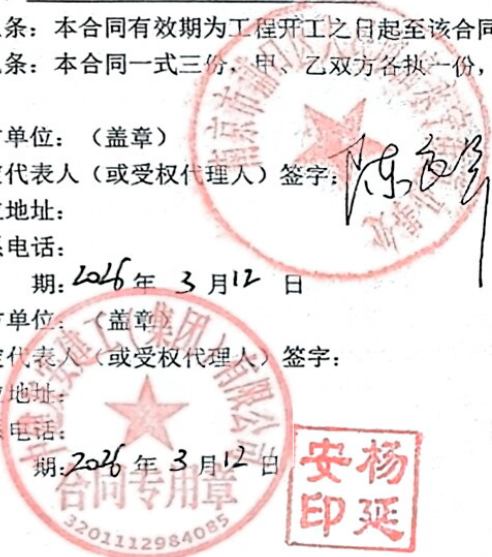 条：本合同有效期为工程开工之日起至该合同
条：本合同一式三份，甲、乙双方各执一份，
单位：（盖章）
代表人（或受权代理人）签字：陈
地址：
电话：
期：2026年 3月12 日
单位：（盖章）
代表人（或受权代理人）签字：
地址：
电话：
期：2026年 3月12日
建工（集团）有限公司
合同专用章
3201112984085
杨延安印